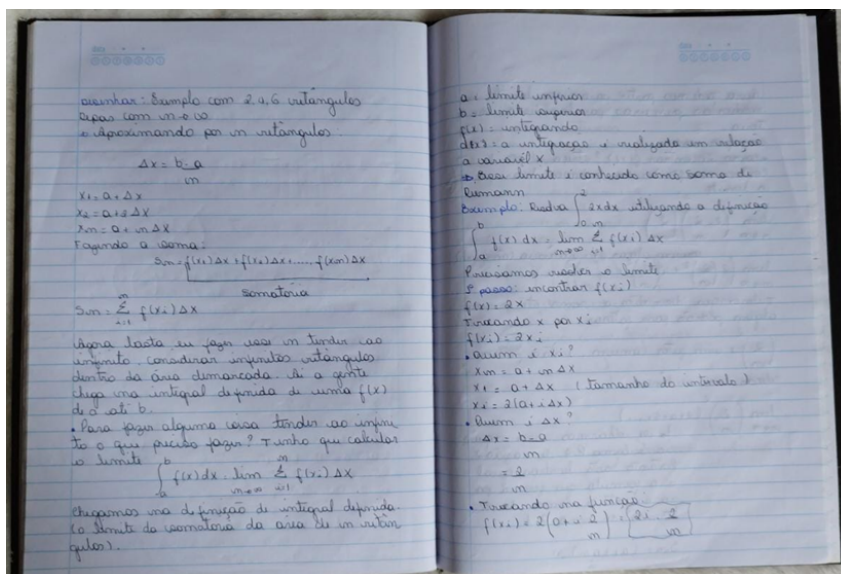 desenhar: Exemplo com 2, 4, 6 retângulos
depois com n→∞
• Aproximando por n retângulos:
Δx = b-a
n
x1 = a + Δx
x2 = a+2Δx
xn = a + nΔx
Fazendo a soma:
Sn = f(x1)Δx + f(x2)Δx+...., f(xn)Δx
somatória
n
Sn = Σ f(xi)Δx
i=1
Agora basta eu fazer esse n tender ao
infinito, considerar infinitos retângulos
dentro da área demarcada. Aí a gente
chega na integral definida de uma f(x)
de a até b.
• Para fazer alguma coisa tender ao infini
to o que preciso fazer? Tenho que calcular
o limite
b n
∫ f(x)dx = lim Σ f(xi)Δx
a n→∞ i=1
Chegamos na definição de integral definida.
(o limite da somatória da área de n retân
gulos).
a = limite inferior
b = limite superior
f(x) = integrando
d(x) = a integração é realizada em relação
a variável x
Esse limite é conhecido como soma de
Riemann
2
Exemplo: Resolva ∫ 2xdx utilizando a definição
0
b n
∫ f(x) dx = lim Σ f(xi) Δx
a n→∞ i=1
Precisamos resolver o limite
1º passo: encontrar f(xi)
f(x) = 2x
Trocando x por xi
f(xi) = 2xi
• Quem é xi?
xn = a + nΔx
x1 = a + Δx (tamanho do intervalo)
xi = 2(a+iΔx)
• Quem é Δx?
Δx = b-a
n
= 2
n
• Trocando na função:
f(xi) = 2(0+i 2) = 2i . 2
n n